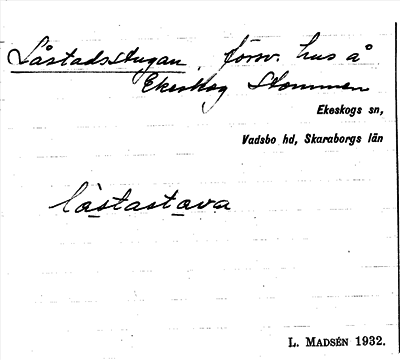 Låstadsstugan, försv. hus å
Ekeskog Stommen
Ekeskogs sn,
Vadsbo hd, Skaraborgs län
låstastava
L. MADSÉN 1932.